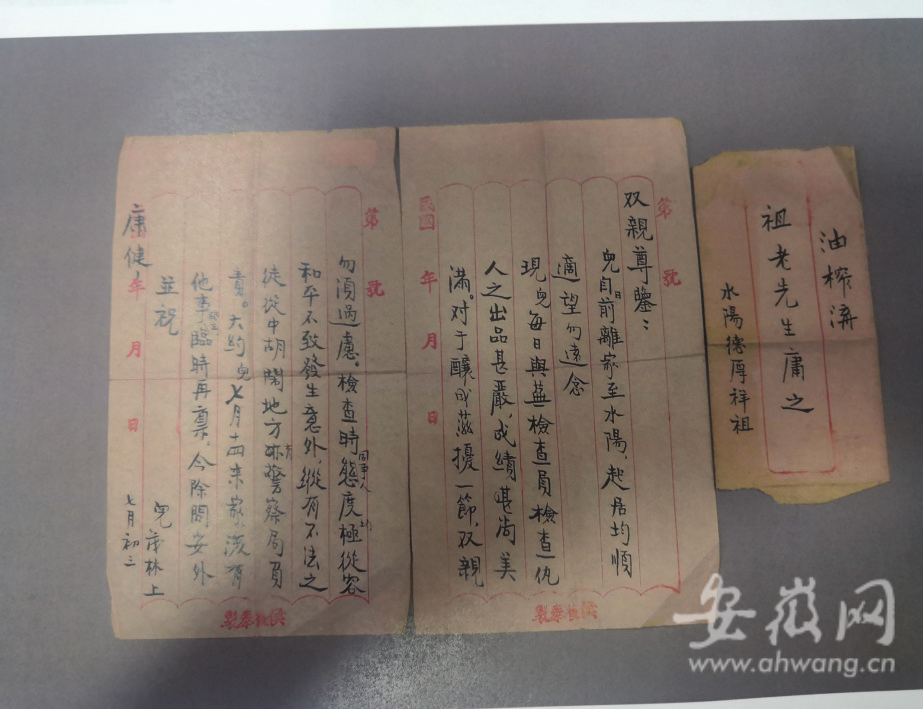 油榨溝
祖老先生庸之
水陽德厚祥祖
第 號
双親尊鑒：
兒日前離家至水陽，起居均順
適望勿遠念
現兒每日與蕪檢查員檢查仇
人之出品甚嚴，成績堪尚美
滿。對于釀成滋擾一節，双親
民國 年 月 日
第 號
勿須過慮。檢查時同事人態度極從容
和平不致發生意外，縱有不法之
徒從中胡鬧地方亦有警察局負
責。大約兒七月十四來家，沒有
他事臨時再稟，今除問安外
並祝
康健
年 月 日
兒茂林上
七月初二
安徽网
www.ahwang.cn